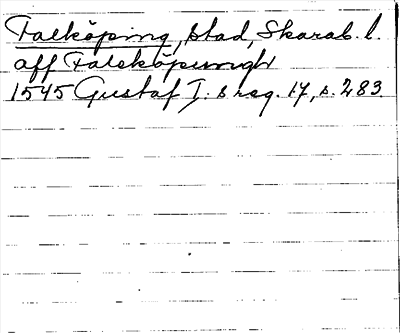 Falköping, stad, Skarab. l.
aff Falsköpungh
1545 Gustaf I:s reg. 17, s. 283